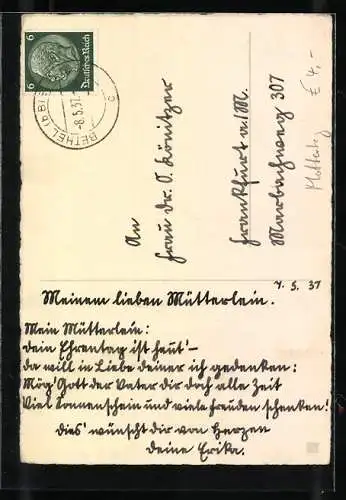 6 6
Deutsches Reich
BETHEL (b BI
-8.5.37.
c
An
Frau Dr. O. Könitzer
Frankfurt a/M.
Marbachweg 307
£ 4,-
7. 5. 37
Meinem lieben Mütterlein.
Mein Mütterlein:
dein Ehrentag ist heut' –
da will in Liebe deiner ich gedenken:
Mög' Gott der Vater dir doch alle Zeit
Viel Sonnenschein und viele Freuden schenken!
Dies' wünscht dir von Herzen
deine Erika.